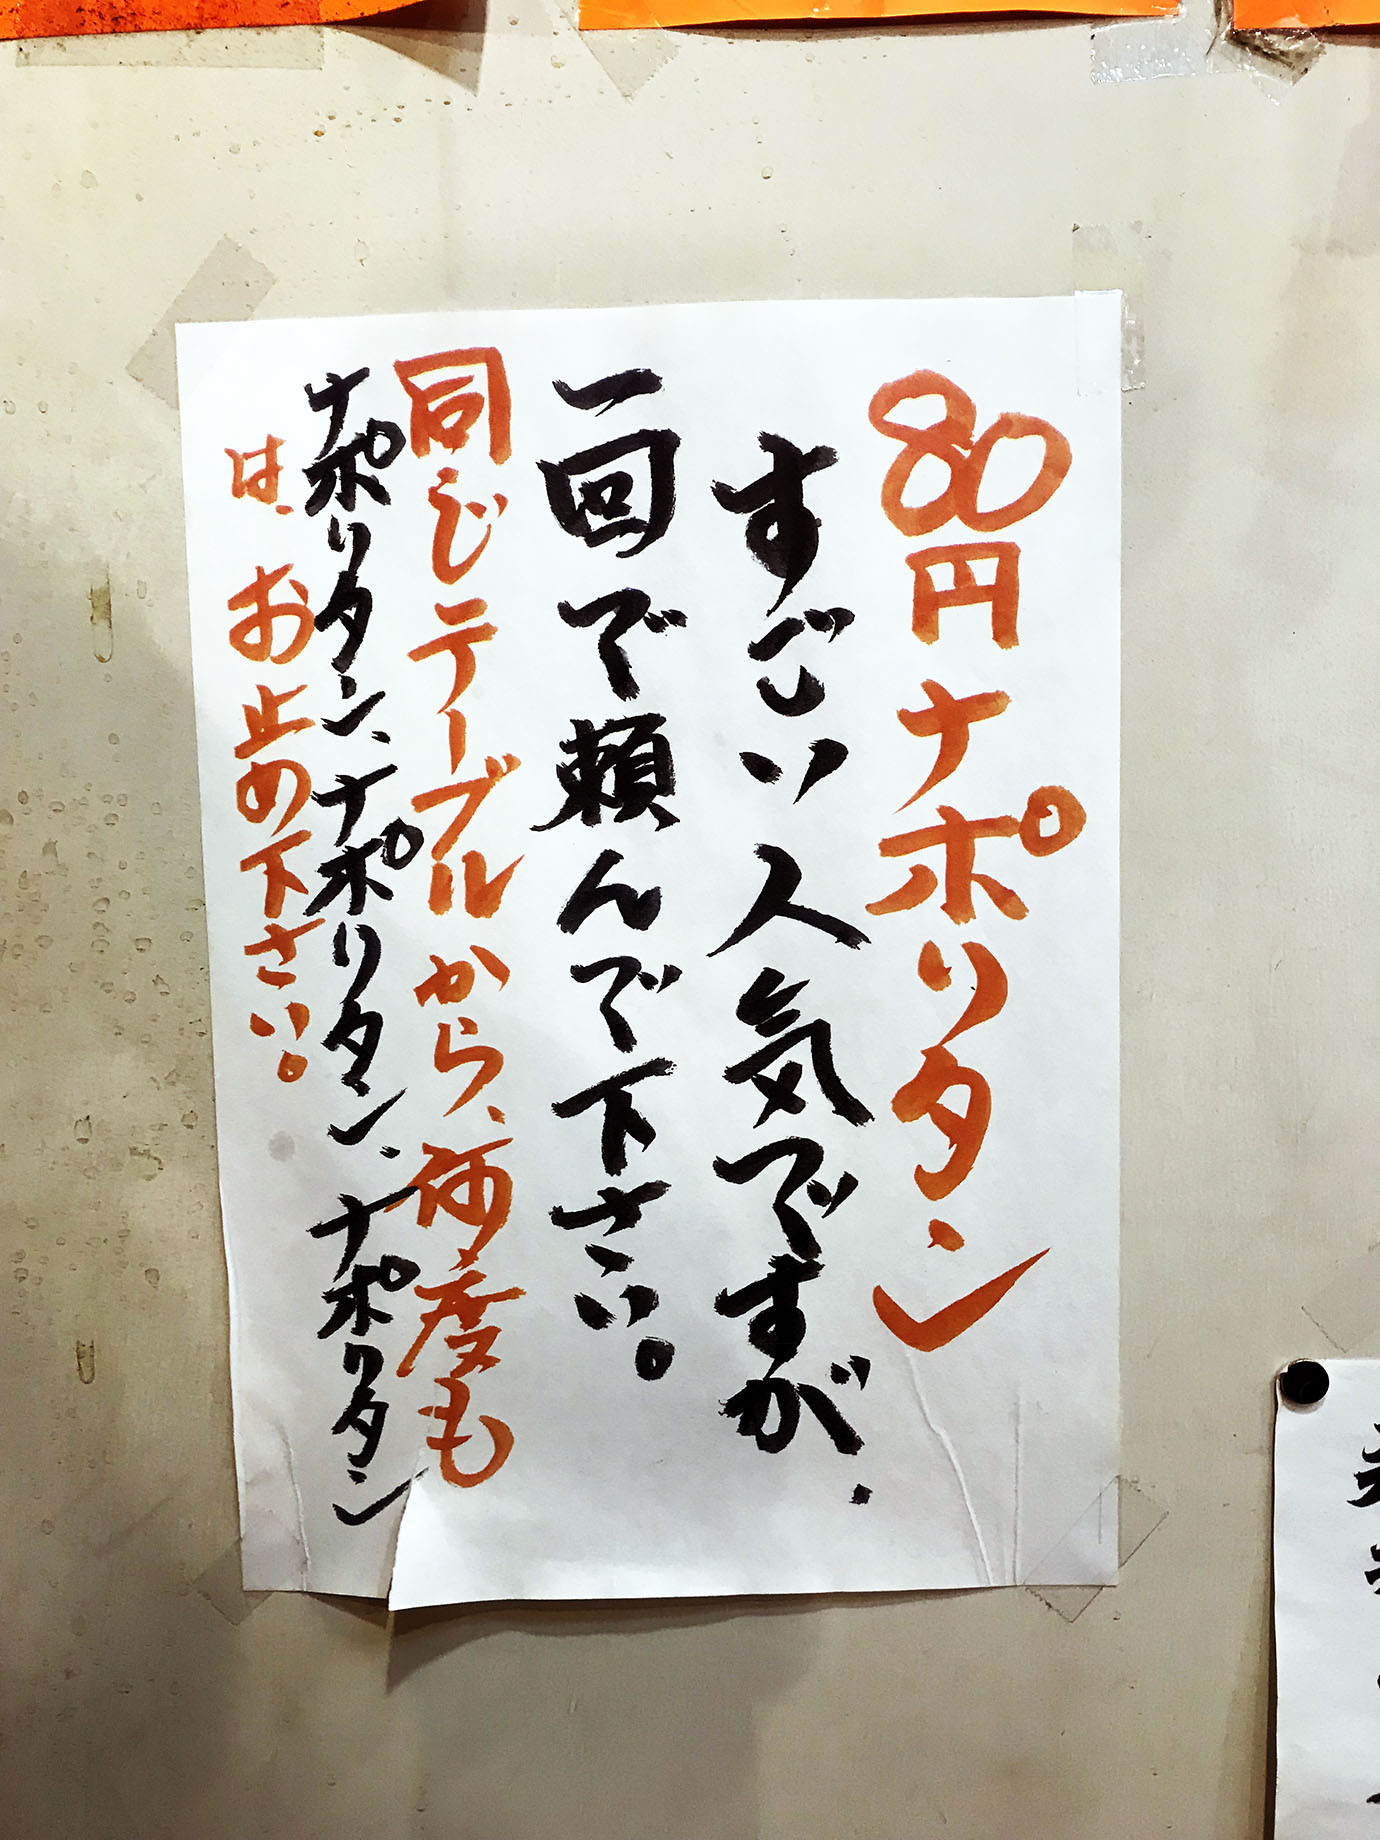 80円ナポリタン
すごい人気ですが、
一回で頼んで下さい。
同じテーブルから、何度も
ナポリタン、ナポリタン、ナポリタン
は、お止め下さい。